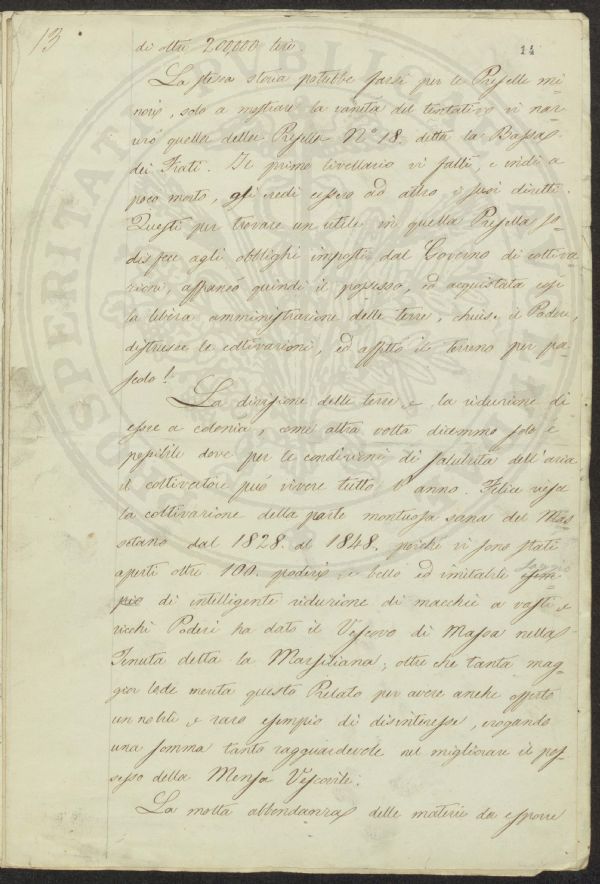 13
14
di oltre 200,000 lire.
La stessa storia potrebbe farsi per le Preselle mi-
nori, solo a mostrare la vanità del tentativo vi nar-
rerò quella della Presella N.° 18. detta la Bassa
dei Frati. Il primo livellario vi fallì, e indi a
poco morto, gli eredi cessero ad altro i suoi diretti.
Questi per trovare un utile in quella Presella so-
disfece agli obblighi imposti dal Governo di coltiva
zioni, affrancò quindi il possesso, ed acquistata così
la libera amministrazione delle terre, chiuse il Podere,
distrusse le coltivazioni, ed affittò il terreno per pa-
scolo!
La divisione delle terre e la riduzione di
esse a colonia, come altra volta dicemmo solo è
possibile dove per le condizioni di salubrità dell'aria
il coltivatore può vivere tutto l'anno. Felice
la coltivazione della parte montuosa sana del Mas
setano dal 1828. al 1848. perchè vi sono stati
aperti oltre 100. poderi, e bello ed imitabile esem-
pio di intelligente riduzione di macchie a vasti e
ricchi Poderi ha dato il Vescovo di Massa nella
Tenuta detta la Marsiliana, oltre che tanta mag
gior lode merita questo Prelato per avere anche offerto
un nobile e raro esempio di disinteresse, erogando
una somma tanto ragguardevole nel migliorare il pos
sesso della Mensa Vescovile.
La molta abbondanza delle materie da esporre